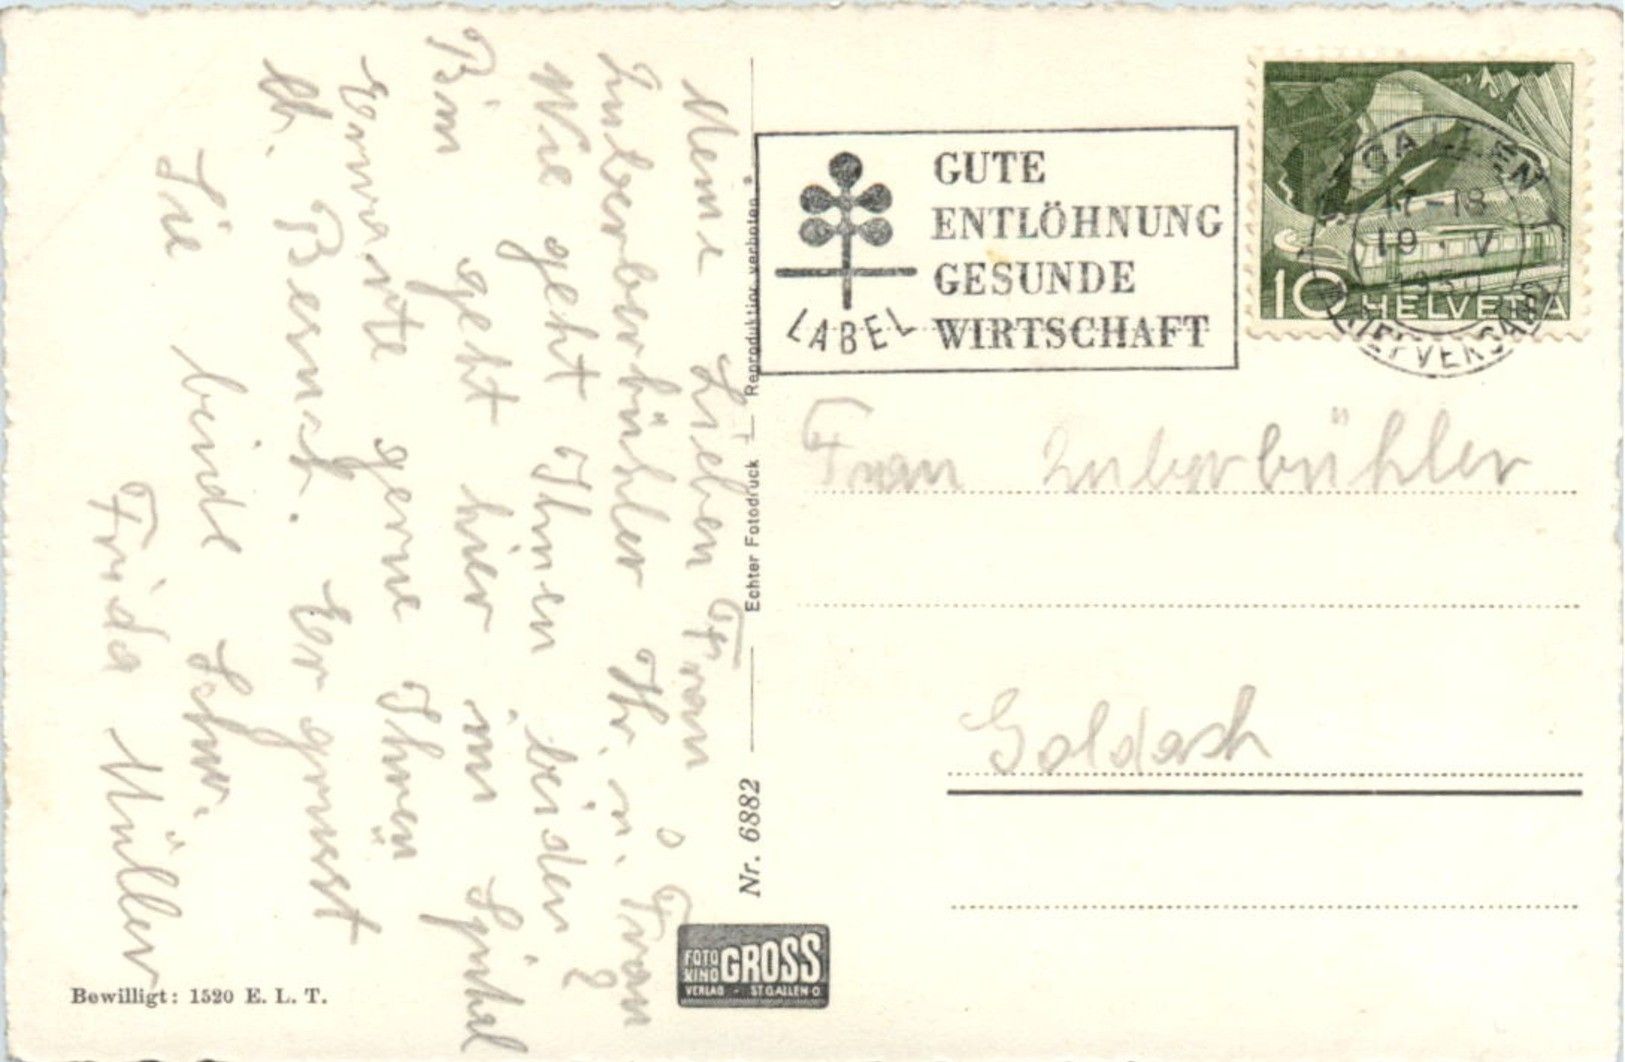 Meine Lieben Frau
Zuberbühler Hr. u. Frau
Wie geht Ihnen beiden?
Bin geht hier im Spital
Erwarte gerne Ihnen
lb. Besuch. Er grüsst
Sie beide Schw.
Frida Müller
Bewilligt: 1520 E. L. T.
Nr. 6882 Echter Fotodruck Reproduktion verboten
FOTO KINO GROSS
VERLAG - ST. GALLEN O.
LABEL
GUTE
ENTLÖHNUNG
GESUNDE
WIRTSCHAFT
ST. GALLEN
17-18
19. V
1950
BRIEFVERSAND
10 HELVETIA
Frau Zuberbühler
Goldach